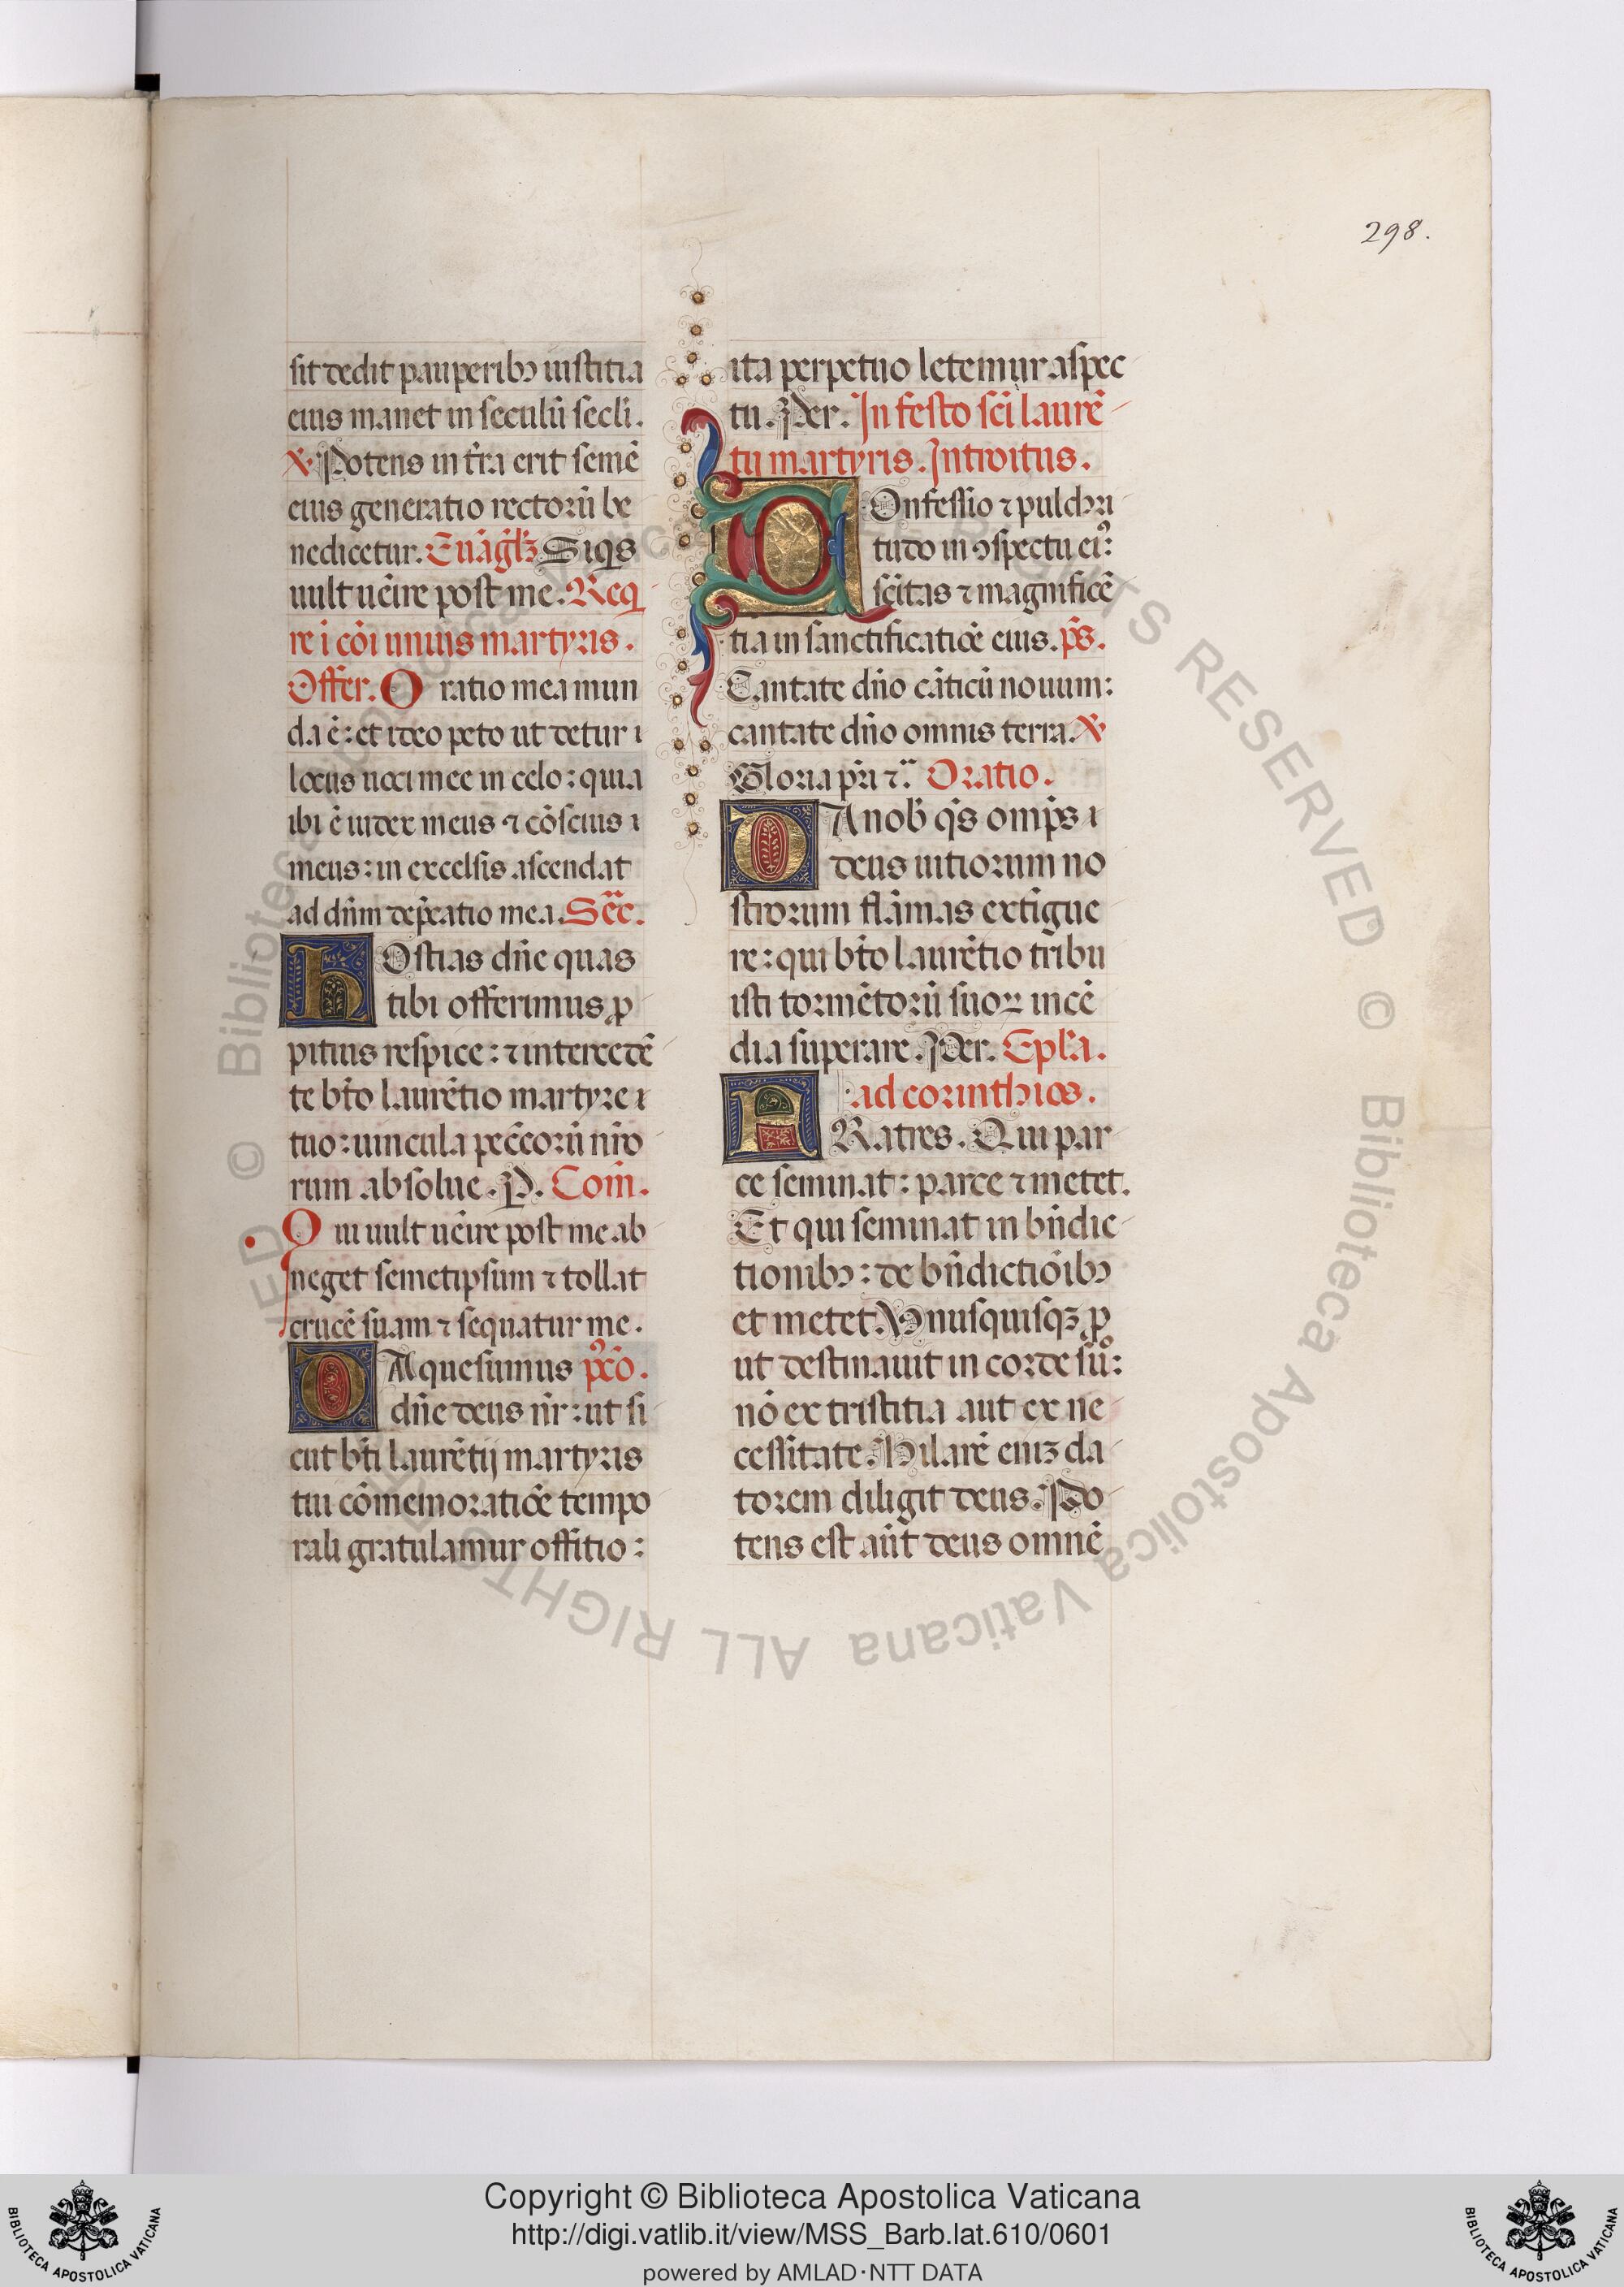 298.
sit dedit pauperibꝰ iustitia
eius manet in seculū secli.
℣. Potens in t̄ra erit semē
eius generatio rectorū be
nedicetur. Euāgl̄ꝫ Siqⁱs
uult uēire post me. Req
re ī cōi unius martyris.
Offer. Oratio mea mun
da ē: et ideo peto ut detur ı
locus uoci mee in celo: quia
ibi ē iudex meus ⁊ cōscius ı
meus: in excelsis ascendat
ad dn̄m dep̄catio mea. Sec̄.
HOstias dn̄e quas
tibi offerimus ꝓ
pitius respice: ⁊ intercedē
te bt̄o laurētio martyre ı
tuo: uincula pecc̄orū nr̄o
rum absolue. P. Com̄.
Qui uult uēire post me ab
neget semetipsum ⁊ tollat
crucē suam ⁊ sequatur me.
DA quesumus pꝰcō.
dn̄e deus nr̄: ut si
cut bt̄i laurētij martyris
tui cōmemoratiōe tempo
rali gratulamur offitio:
ita perpetuo letemur aspec
tu. Per. In festo sc̄i laurē
tij martyris. Introitus.
COnfessio ⁊ pulchri
tudo in ꝯspectu eiꝰ:
sc̄itas ⁊ magnificē
tia in sanctificatiōe eius. p̄s.
Cantate dn̄o cāticū nouum:
cantate dn̄o omnis terra. ℣.
Gloria pr̄i ⁊. Oratio.
DA nob̄ qs̄ omp̄s ı
deus uitiorum no
strorum flāmas extīgue
re: qui bt̄o laurētio tribu
isti tormētorū suoꝝ incē
dia superare. Per. Epl̄a.
ad corinthios.
FRatres. Qui par
ce seminat: parce ⁊ metet.
Et qui seminat in bn̄dic
tionibꝰ: de bn̄dictiōibꝰ
et metet. Vnusquisqꝫ ꝓ
ut destinauit in corde suo:
nō ex tristitia aut ex ne
cessitate. Hilarē eniꝫ da
torem diligit deus. Po
tens est aūt deus omnē
Copyright © Biblioteca Apostolica Vaticana
http://digi.vatlib.it/view/MSS_Barb.lat.610/0601
powered by AMLAD·NTT DATA
BIBLIOTECA APOSTOLICA VATICANA
BIBLIOTECA APOSTOLICA VATICANA